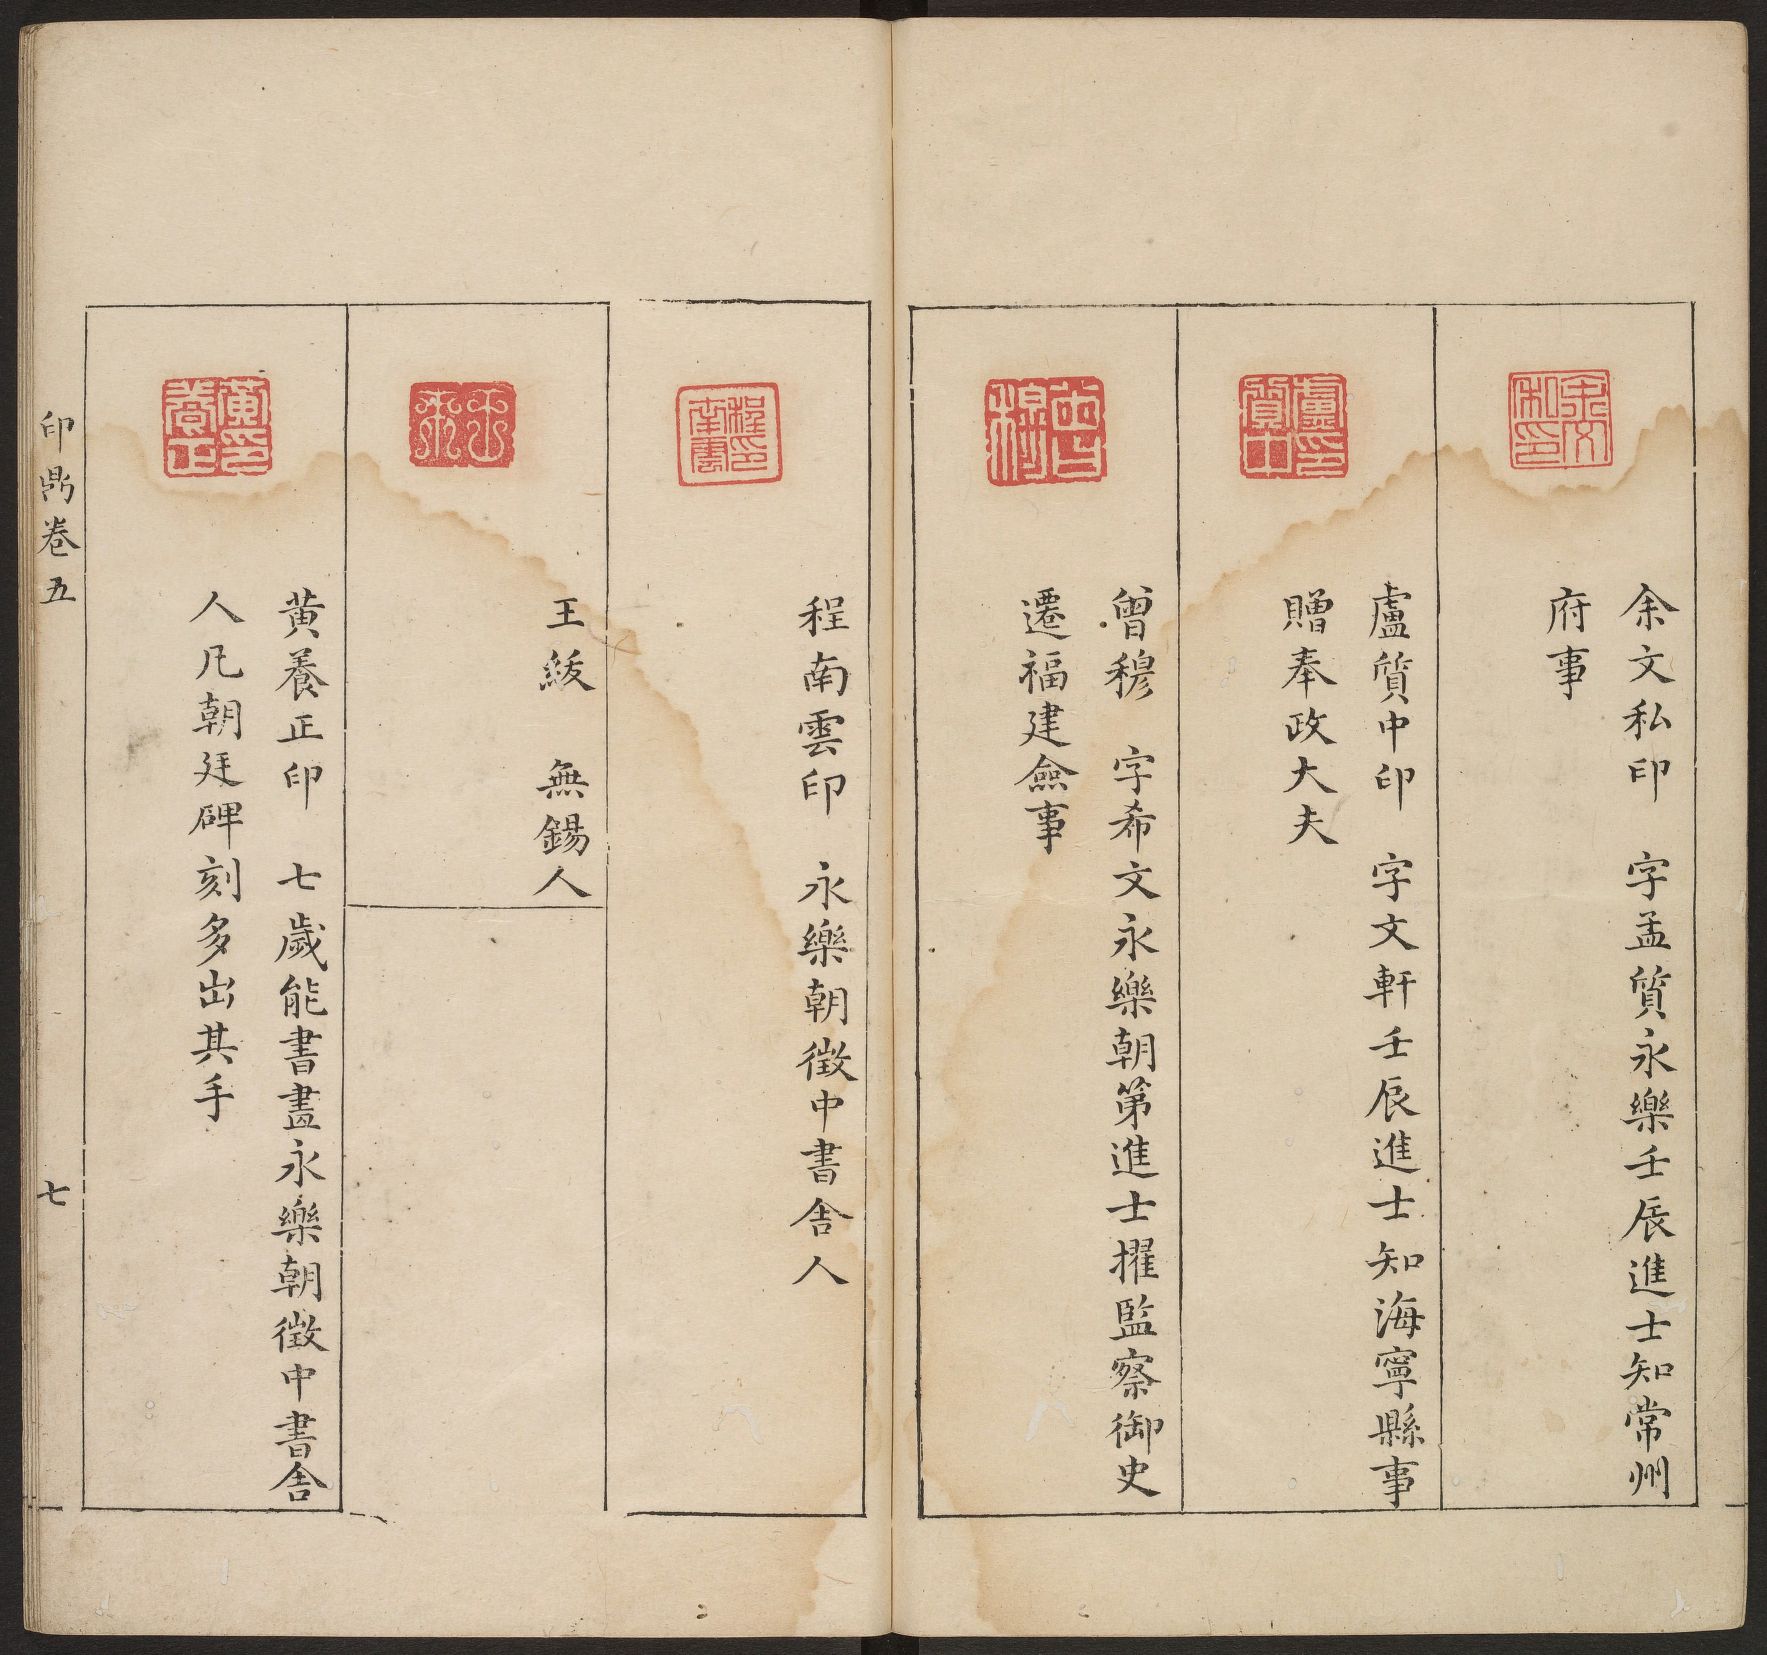 余文私印　字孟質永樂壬辰進士知常州
府事
盧質中印　字文軒壬辰進士知海寧縣事
贈奉政大夫
曾穆　字希文永樂朝第進士擢監察御史
遷福建僉事
程南雲印　永樂朝徵中書舍人
王紱　無錫人
黄養正印　七歲能書畫永樂朝徵中書舍
人凡朝廷碑刻多出其手
印鼎卷五
七
余文私印
盧質中印
曾穆
程南雲印
黄養正印